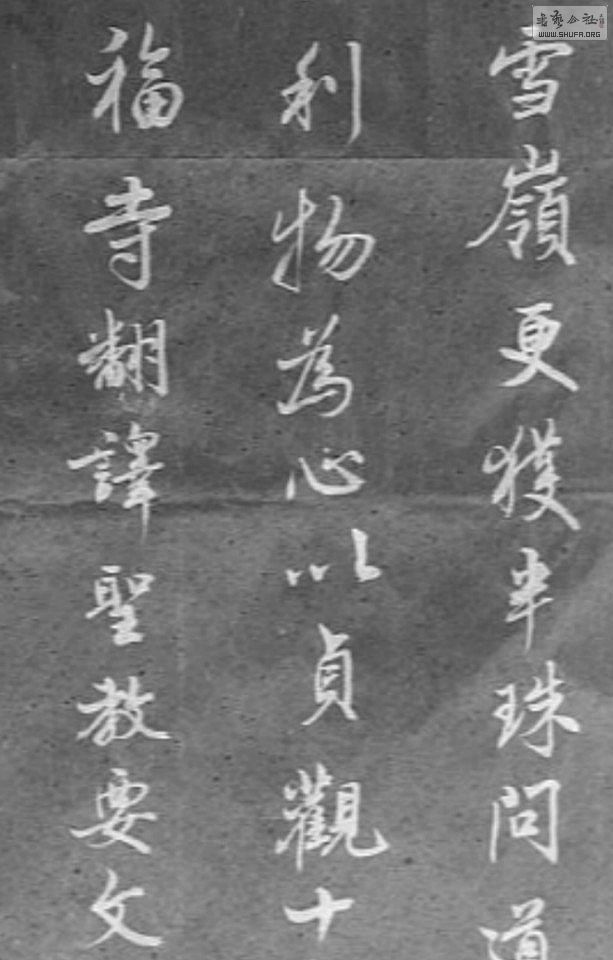 雪嶺更獲半珠問道
利物為心以貞觀十
福寺翻譯聖教要文
WWW.SHUFA.ORG